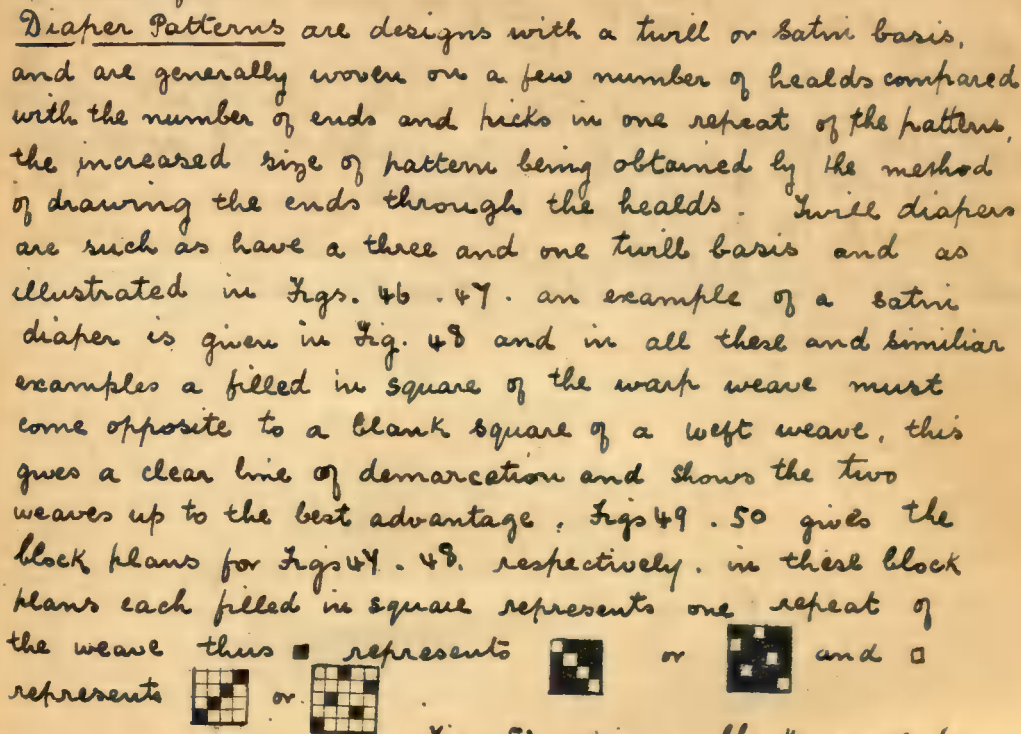 Diaper Patterns are designs with a twill or Satin basis,
and are generally woven on a few number of healds compared
with the number of ends and picks in one repeat of the pattern,
the increased size of pattern being obtained by the method
of drawing the ends through the healds. Twill diapers
are such as have a three and one twill basis and as
illustrated in Figs. 46 . 47 . an example of a satin
diaper is given in Fig. 48 and in all these and similiar
examples a filled in square of the warp weave must
come opposite to a blank square of a weft weave, this
gives a clear line of demarcation and shows the two
weaves up to the best advantage. Figs 49 . 50 gives the
block plans for Figs 47 . 48. respectively. in these block
plans each filled in square represents one repeat of
the weave thus ■ represents or and □
represents or